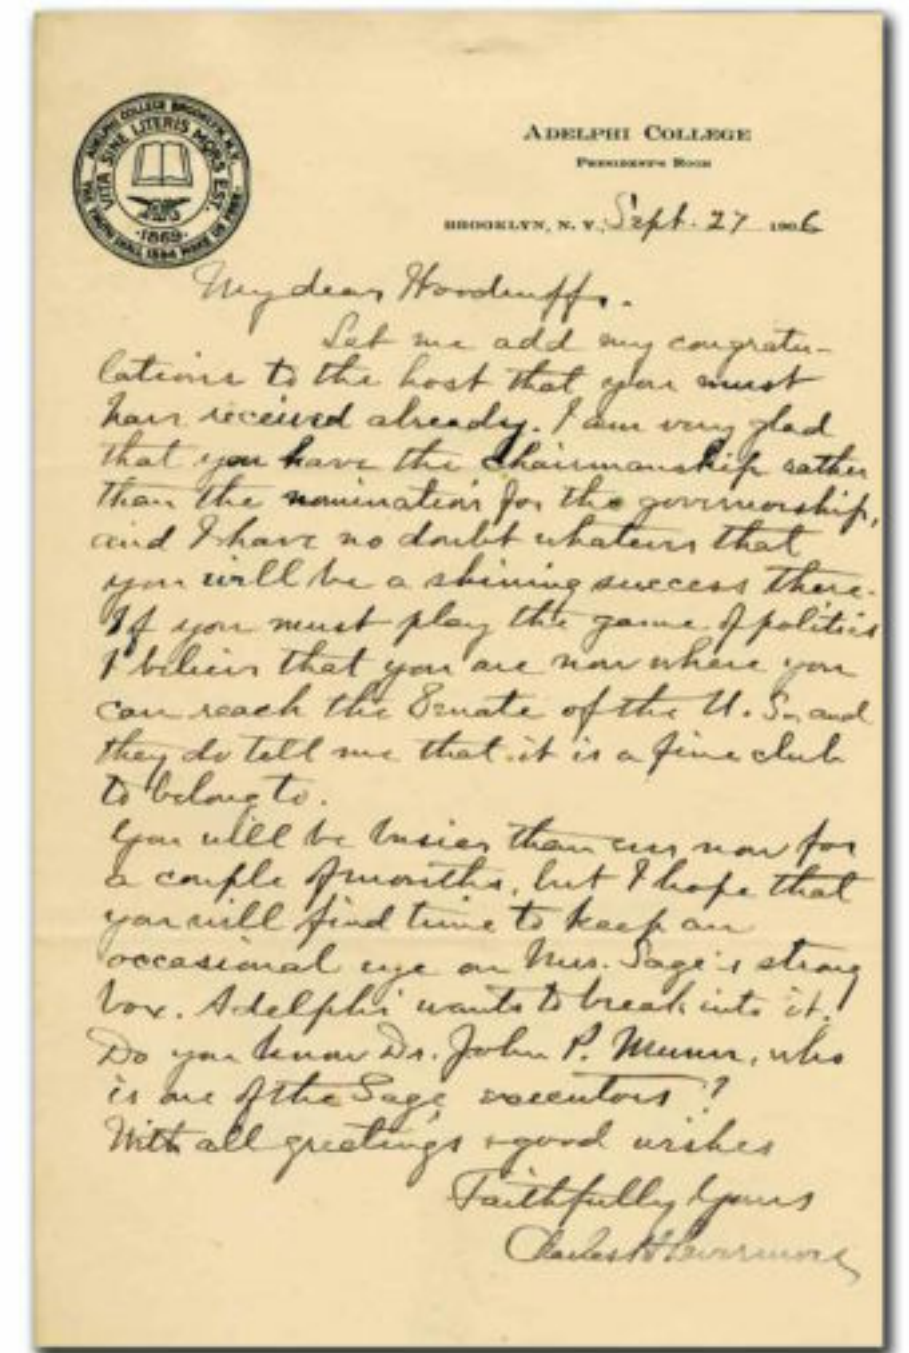 ADELPHI COLLEGE BROOKLYN, N.Y.
VITA SINE LITERIS MORS EST.
·1869·
THE TRUTH SHALL 1894 MAKE US FREE
ADELPHI COLLEGE
PRESIDENT'S ROOM
BROOKLYN, N. Y., Sept. 27 1906
My dear Woodruff,
Let me add my congratu-
lations to the host that you must
have received already. I am very glad
that you have the chairmanship rather
than the nomination for the governorship,
and I have no doubt whatever that
you will be a shining success there.
If you must play the game of politics
I believe that you are now where you
can reach the Senate of the U. S., and
they do tell me that it is a fine club
to belong to.
You will be busier than ever now for
a couple of months, but I hope that
you will find time to keep an
occasional eye on Mrs. Sage's strong
box. Adelphi wants to break into it!
Do you know Dr. John P. Munn, who
is one of the Sage executors?
With all greetings & good wishes
Faithfully Yours
Charles H Levermore